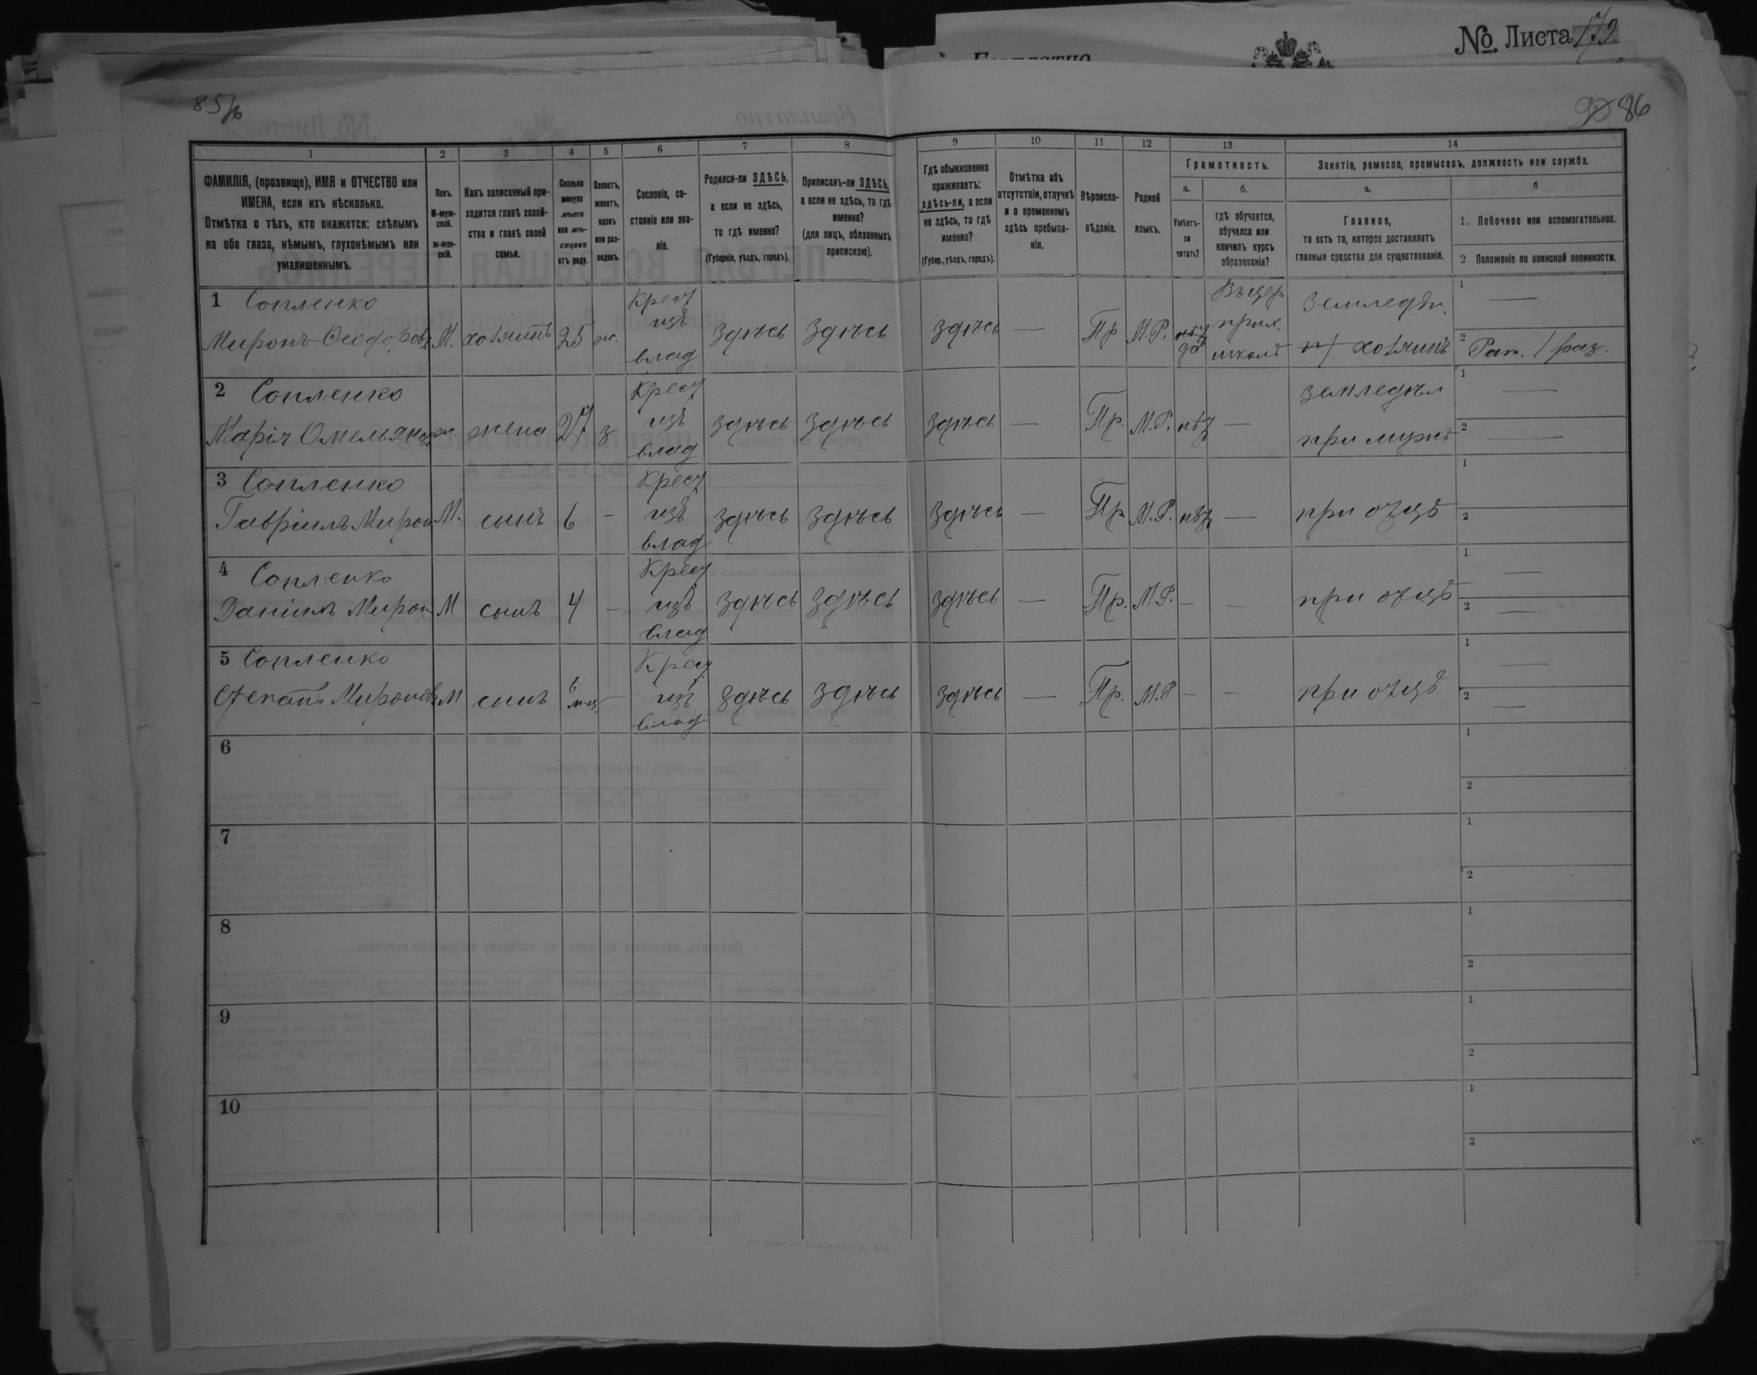 No. Листа 172
Безплатно
85/б
86
1
2
3
4
5
6
7
8
9
10
11
12
13
14
ФАМИЛІЯ, (прозвище), ИМЯ и ОТЧЕСТВО или
ИМЕНА, если ихъ нѣсколько.
Отмѣтка о тѣхъ, кто окажется: слѣпымъ
на оба глаза, нѣмымъ, глухонѣмымъ или
умалишеннымъ.
Полъ.
М-муж-
ской.
ж-жен-
скій.
Какъ записанный при-
ходится главѣ хозяй-
ства и главѣ своей
семьи.
Сколько
минуло
лѣтъ
или мѣ-
сяцевъ
отъ роду.
Холостъ,
женатъ,
вдовъ
или раз-
веденъ.
Сословіе, со-
стояніе или зва-
ніе.
Родился-ли ЗДѢСЬ,
а если не здѣсь,
то гдѣ именно?
(Губернія, уѣздъ, городъ).
Приписанъ-ли ЗДѢСЬ,
а если не здѣсь, то гдѣ
именно?
(для лицъ, обязанныхъ
припискою).
Гдѣ обыкновенно
проживаетъ:
здѣсь-ли, а если
не здѣсь, то гдѣ
именно?
(Губер., уѣздъ, городъ).
Отмѣтка объ
отсутствіи, отлучкѣ
и о временномъ
здѣсь пребыва-
ніи.
Вѣроиспо-
вѣданіе.
Родной
языкъ.
Грамотность.
а.
б.
Умѣетъ-
ли
читать?
гдѣ обучается,
обучался или
кончилъ курсъ
образованія?
Занятіе, ремесло, промыселъ, должность или служба.
а.
б
Главное,
то есть то, которое доставляетъ
главныя средства для существованія.
1. Побочное или вспомогательное.
2 Положеніе по воинской повинности.
1 Сопленко
Миронъ Ѳеодоровъ М. хозяинъ 25 ж. Крест изъ влад здѣсь здѣсь здѣсь — Пр М.Р. да Въ церк прих. школѣ Земледѣл. хозяинъ 1 — 2 Рат. 1 раз.
2 Сопленко
Марія Омельянов ж. жена 27 з Крест изъ влад здѣсь здѣсь здѣсь — Пр. М.Р. нѣт — земледѣл при мужѣ 1 — 2 —
3 Сопленко
Гавріилъ Мирон М. сынъ 6 - Крест изъ влад здѣсь здѣсь здѣсь — Пр М.Р. нѣт — при отцѣ 1 2
4 Сопленко
Даніилъ Мирон М сынъ 4 - Крест изъ влад здѣсь здѣсь здѣсь — Пр. М.Р. - - при отцѣ 1 — 2 —
5 Сопленко
Степанъ Миронов М сынъ 6 м-ц - Крест изъ влад здѣсь здѣсь здѣсь — Пр. М.Р - - при отцѣ 1 — 2 —
6 1
2
7 1
2
8 1
2
9 1
2
10 1
2